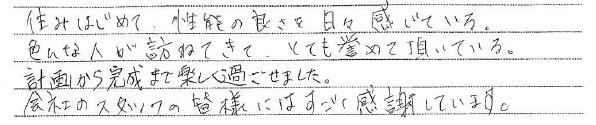 住みはじめて、性能の良さを日々感じている。
色んな人が訪ねてきて、とても誉めて頂いている。
計画から完成まで楽しく過ごせました。
会社のスタッフの皆様にはすごく感謝しています。